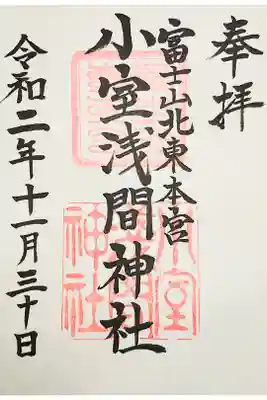 奉拝
富士山北東本宮
小室浅間神社
令和二年十一月三十日